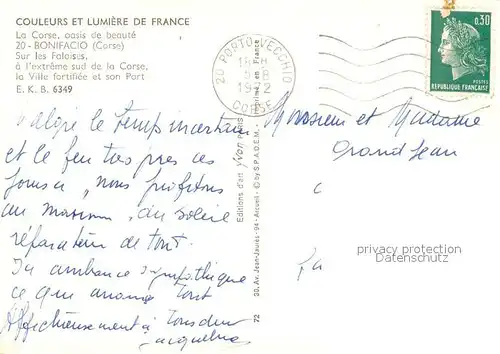 COULEURS ET LUMIÈRE DE FRANCE
La Corse, oasis de beauté
20 - BONIFACIO (Corse)
Sur les Falaises,
à l'extrême sud de la Corse,
la Ville fortifiée et son Port
E. K. B. 6349
Malgré le temps incertain
et le feu très près ces
jours ci, nous profitons
au maximum du soleil
réparateur de tout.
ambiance sympathique
ce que nous tout
Affectueusement à tous deux
Jacqueline
Editions d'art Yvon PARIS
Imprimé en France
© by S.P.A.D.E.M.
30, Av. Jean-Jaurès - 94 - Arcueil
72
20 PORTO-VECCHIO
CORSE
0,30
POSTES
REPUBLIQUE FRANCAISE
Monsieur et Madame
Grandjean
privacy protection
Datenschutz